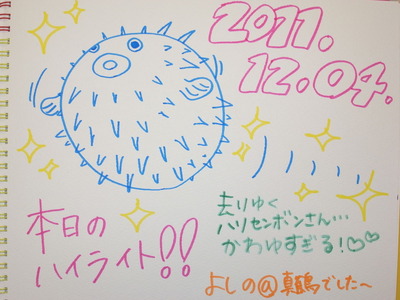 2011.
12.04.
本日の
ハイライト!!
去りゆく
ハリセンボンさん…
かわゆすぎる!♡♡
よしの@真鶴でした〜